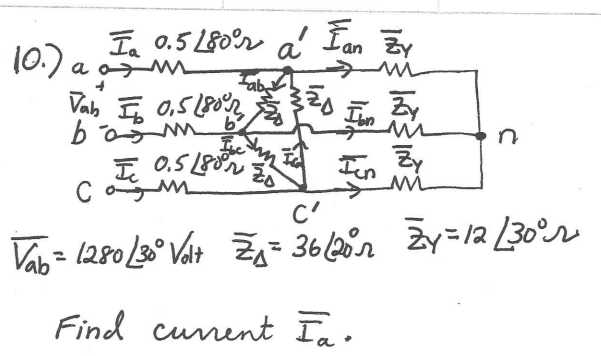 10.) a I̅a 0.5∠80°Ω a' I̅an Z̅Y
+ V̅ab - I̅ab Z̅Δ Z̅Δ
b I̅b 0.5∠80°Ω b' I̅bn Z̅Y n
I̅bc Z̅Δ
c I̅c 0.5∠80°Ω c' I̅cn Z̅Y
V̅ab = 1280∠30° Volt Z̅Δ = 36∠20°Ω Z̅Y = 12∠30°Ω
Find current I̅a.